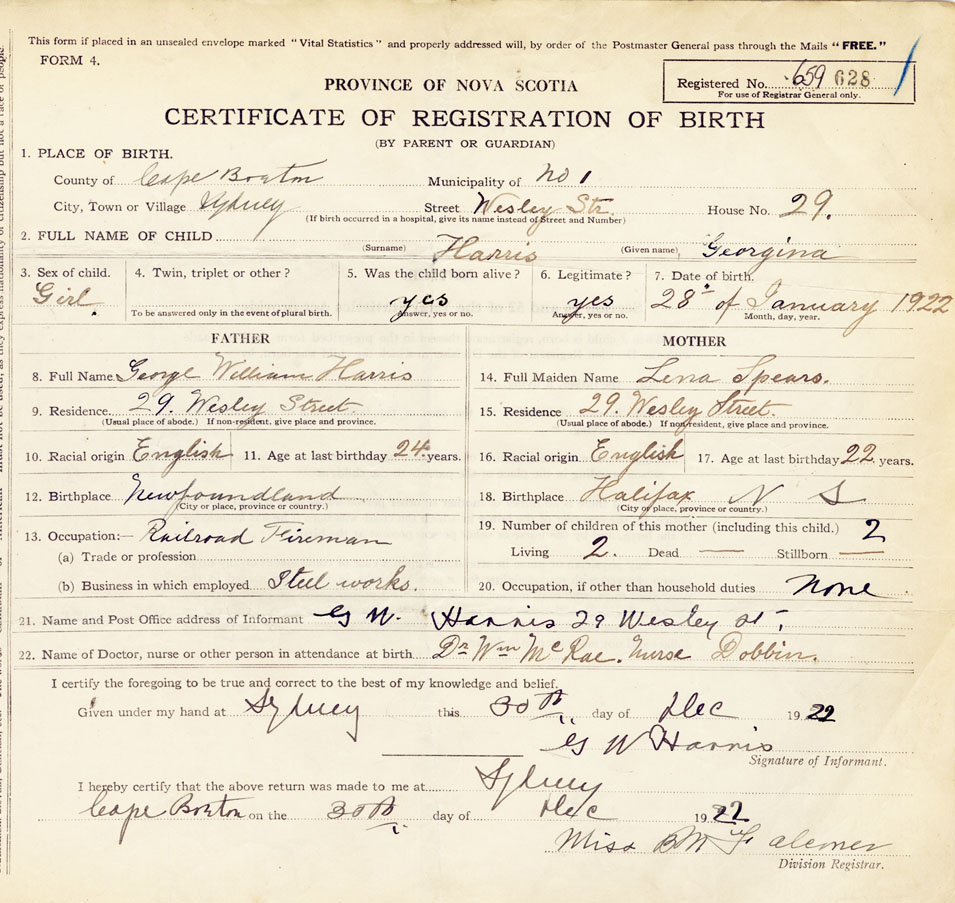 This form if placed in an unsealed envelope marked "Vital Statistics" and properly addressed will, by order of the Postmaster General pass through the Mails "FREE."
FORM 4.
Registered No. 659 628
For use of Registrar General only.
PROVINCE OF NOVA SCOTIA
CERTIFICATE OF REGISTRATION OF BIRTH
(BY PARENT OR GUARDIAN)
1. PLACE OF BIRTH.
County of Cape Breton Municipality of No 1
City, Town or Village Sydney Street Wesley Str. House No. 29.
(If birth occurred in a hospital, give its name instead of Street and Number)
2. FULL NAME OF CHILD (Surname) Harris (Given name) Georgina
3. Sex of child. 4. Twin, triplet or other? 5. Was the child born alive? 6. Legitimate? 7. Date of birth.
Girl yes yes 28 of January 1922
To be answered only in the event of plural birth. Answer, yes or no. Answer, yes or no. Month, day, year.
FATHER MOTHER
8. Full Name George William Harris 14. Full Maiden Name Lena Spears.
9. Residence 29. Wesley Street. 15. Residence 29. Wesley Street.
(Usual place of abode.) If non-resident, give place and province. (Usual place of abode.) If non-resident, give place and province.
10. Racial origin English 11. Age at last birthday 24 years. 16. Racial origin English 17. Age at last birthday 22 years.
12. Birthplace Newfoundland 18. Birthplace Halifax N S
(City or place, province or country.) (City or place, province or country.)
13. Occupation:— Railroad Fireman 19. Number of children of this mother (including this child.) 2
(a) Trade or profession Living 2. Dead — Stillborn —
(b) Business in which employed Steel works. 20. Occupation, if other than household duties None
21. Name and Post Office address of Informant G W. Harris 29 Wesley st.
22. Name of Doctor, nurse or other person in attendance at birth Dr Wm McRae. Nurse Dobbin.
I certify the foregoing to be true and correct to the best of my knowledge and belief.
Given under my hand at Sydney this 30th day of Dec 1922
G W Harris
Signature of Informant.
I hereby certify that the above return was made to me at Sydney
Cape Breton on the 30th day of Dec 1922
Miss B M
Division Registrar.